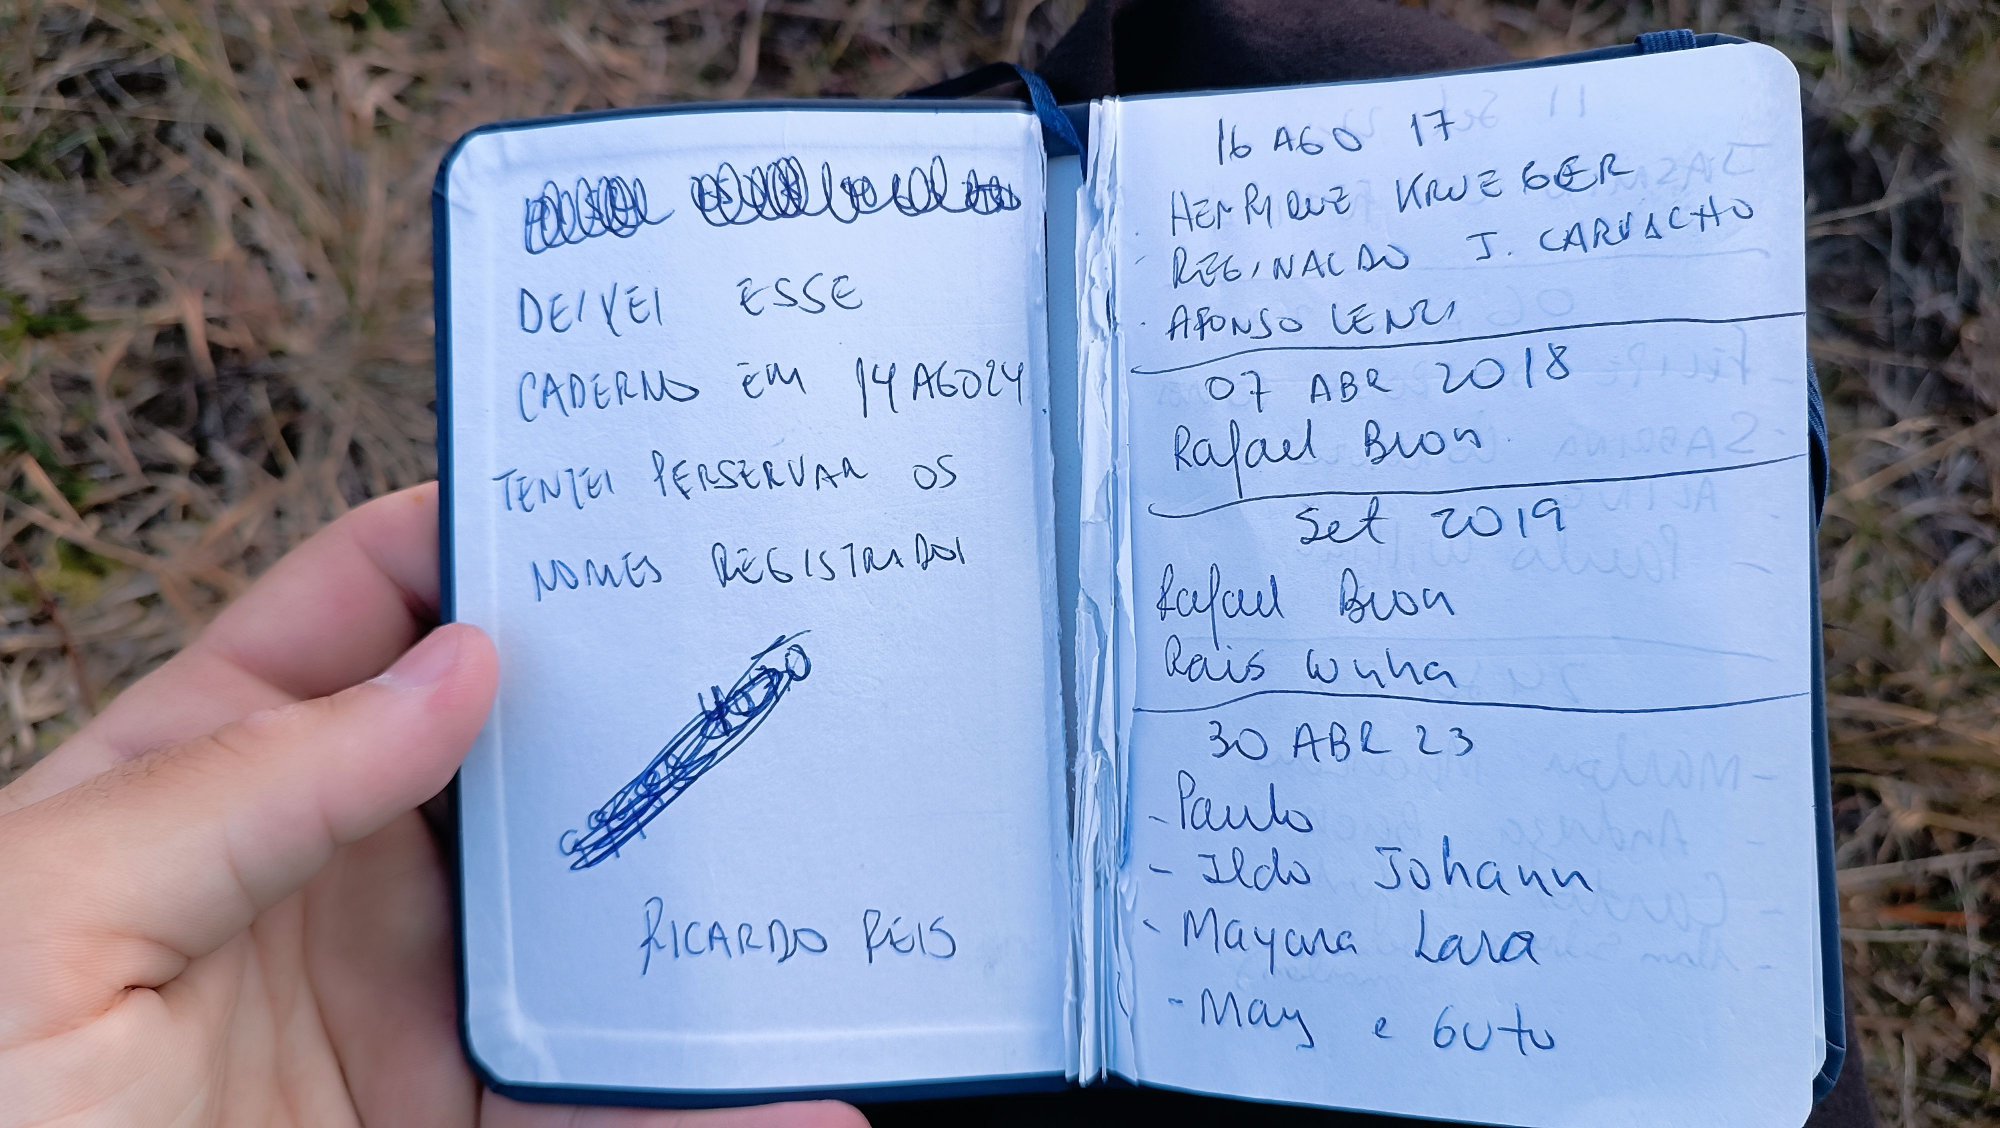 DEIXEI ESSE
CADERNO EM 14 AGO 24
TENTEI PERSERVAR OS
NOMES REGISTRADOS
RICARDO REIS
16 AGO 17
HENRIQUE KRUEGER
REGINALDO J. CARVACHO
AFONSO LENZI
07 ABR 2018
Rafael Bron
Set 2019
Rafael Bron
Rais
30 ABR 23
- Paulo
- Ildo Johann
- Mayara Lara
- May e Guto